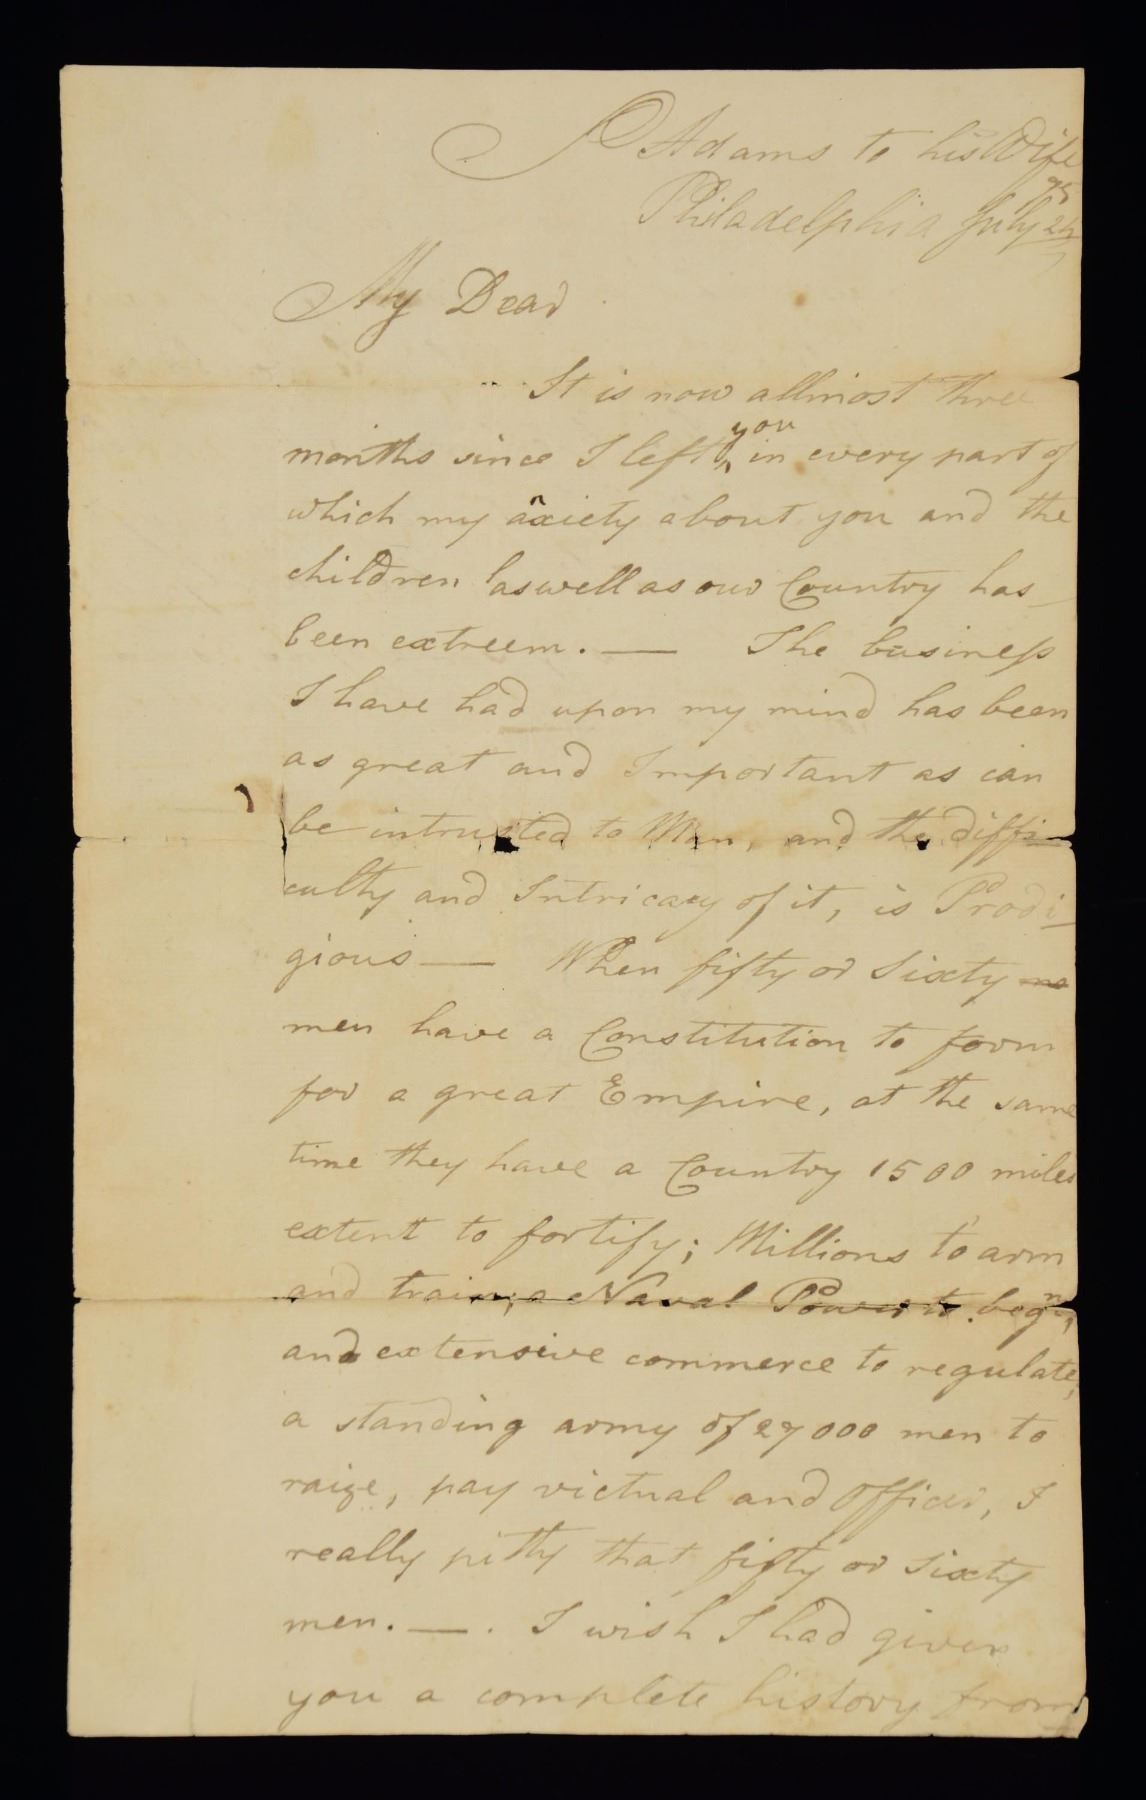 J Adams to his Wife
Philadelphia July 24
75
My Dear
It is now allmost three
months since I left you in every part of
which my anxiety about you and the
children as well as our Country has
been extreem. — The business
I have had upon my mind has been
as great and Important as can
be intrusted to Man, and the diffi-
culty and Intricacy of it, is Prodi-
gious — When fifty or Sixty
men have a Constitution to form
for a great Empire, at the same
time they have a Country 1500 miles
extent to fortify; Millions to arm
and train, a Naval Power to begin,
and extensive commerce to regulate,
a standing army of 27000 men to
raize, pay victual and officer, I
really pitty that fifty or sixty
men. —. I wish I had given
you a complete history from